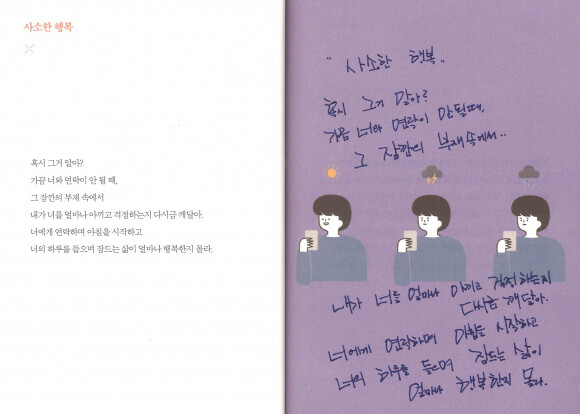 사소한 행복
혹시 그거 알아?
가끔 너와 연락이 안 될 때,
그 잠깐의 부재 속에서
내가 너를 얼마나 아끼고 걱정하는지 다시금 깨달아.
너에게 연락하며 아침을 시작하고
너의 하루를 들으며 잠드는 삶이 얼마나 행복한지 몰라.
" 사소한 행복 "
혹시 그거 알아?
가끔 너와 연락이 안 될 때,
그 잠깐의 부재 속에서..
내가 너를 얼마나 아끼고 걱정하는지
다시금 깨달아.
너에게 연락하며 아침을 시작하고
너의 하루를 들으며 잠드는 삶이
얼마나 행복한지 몰라.